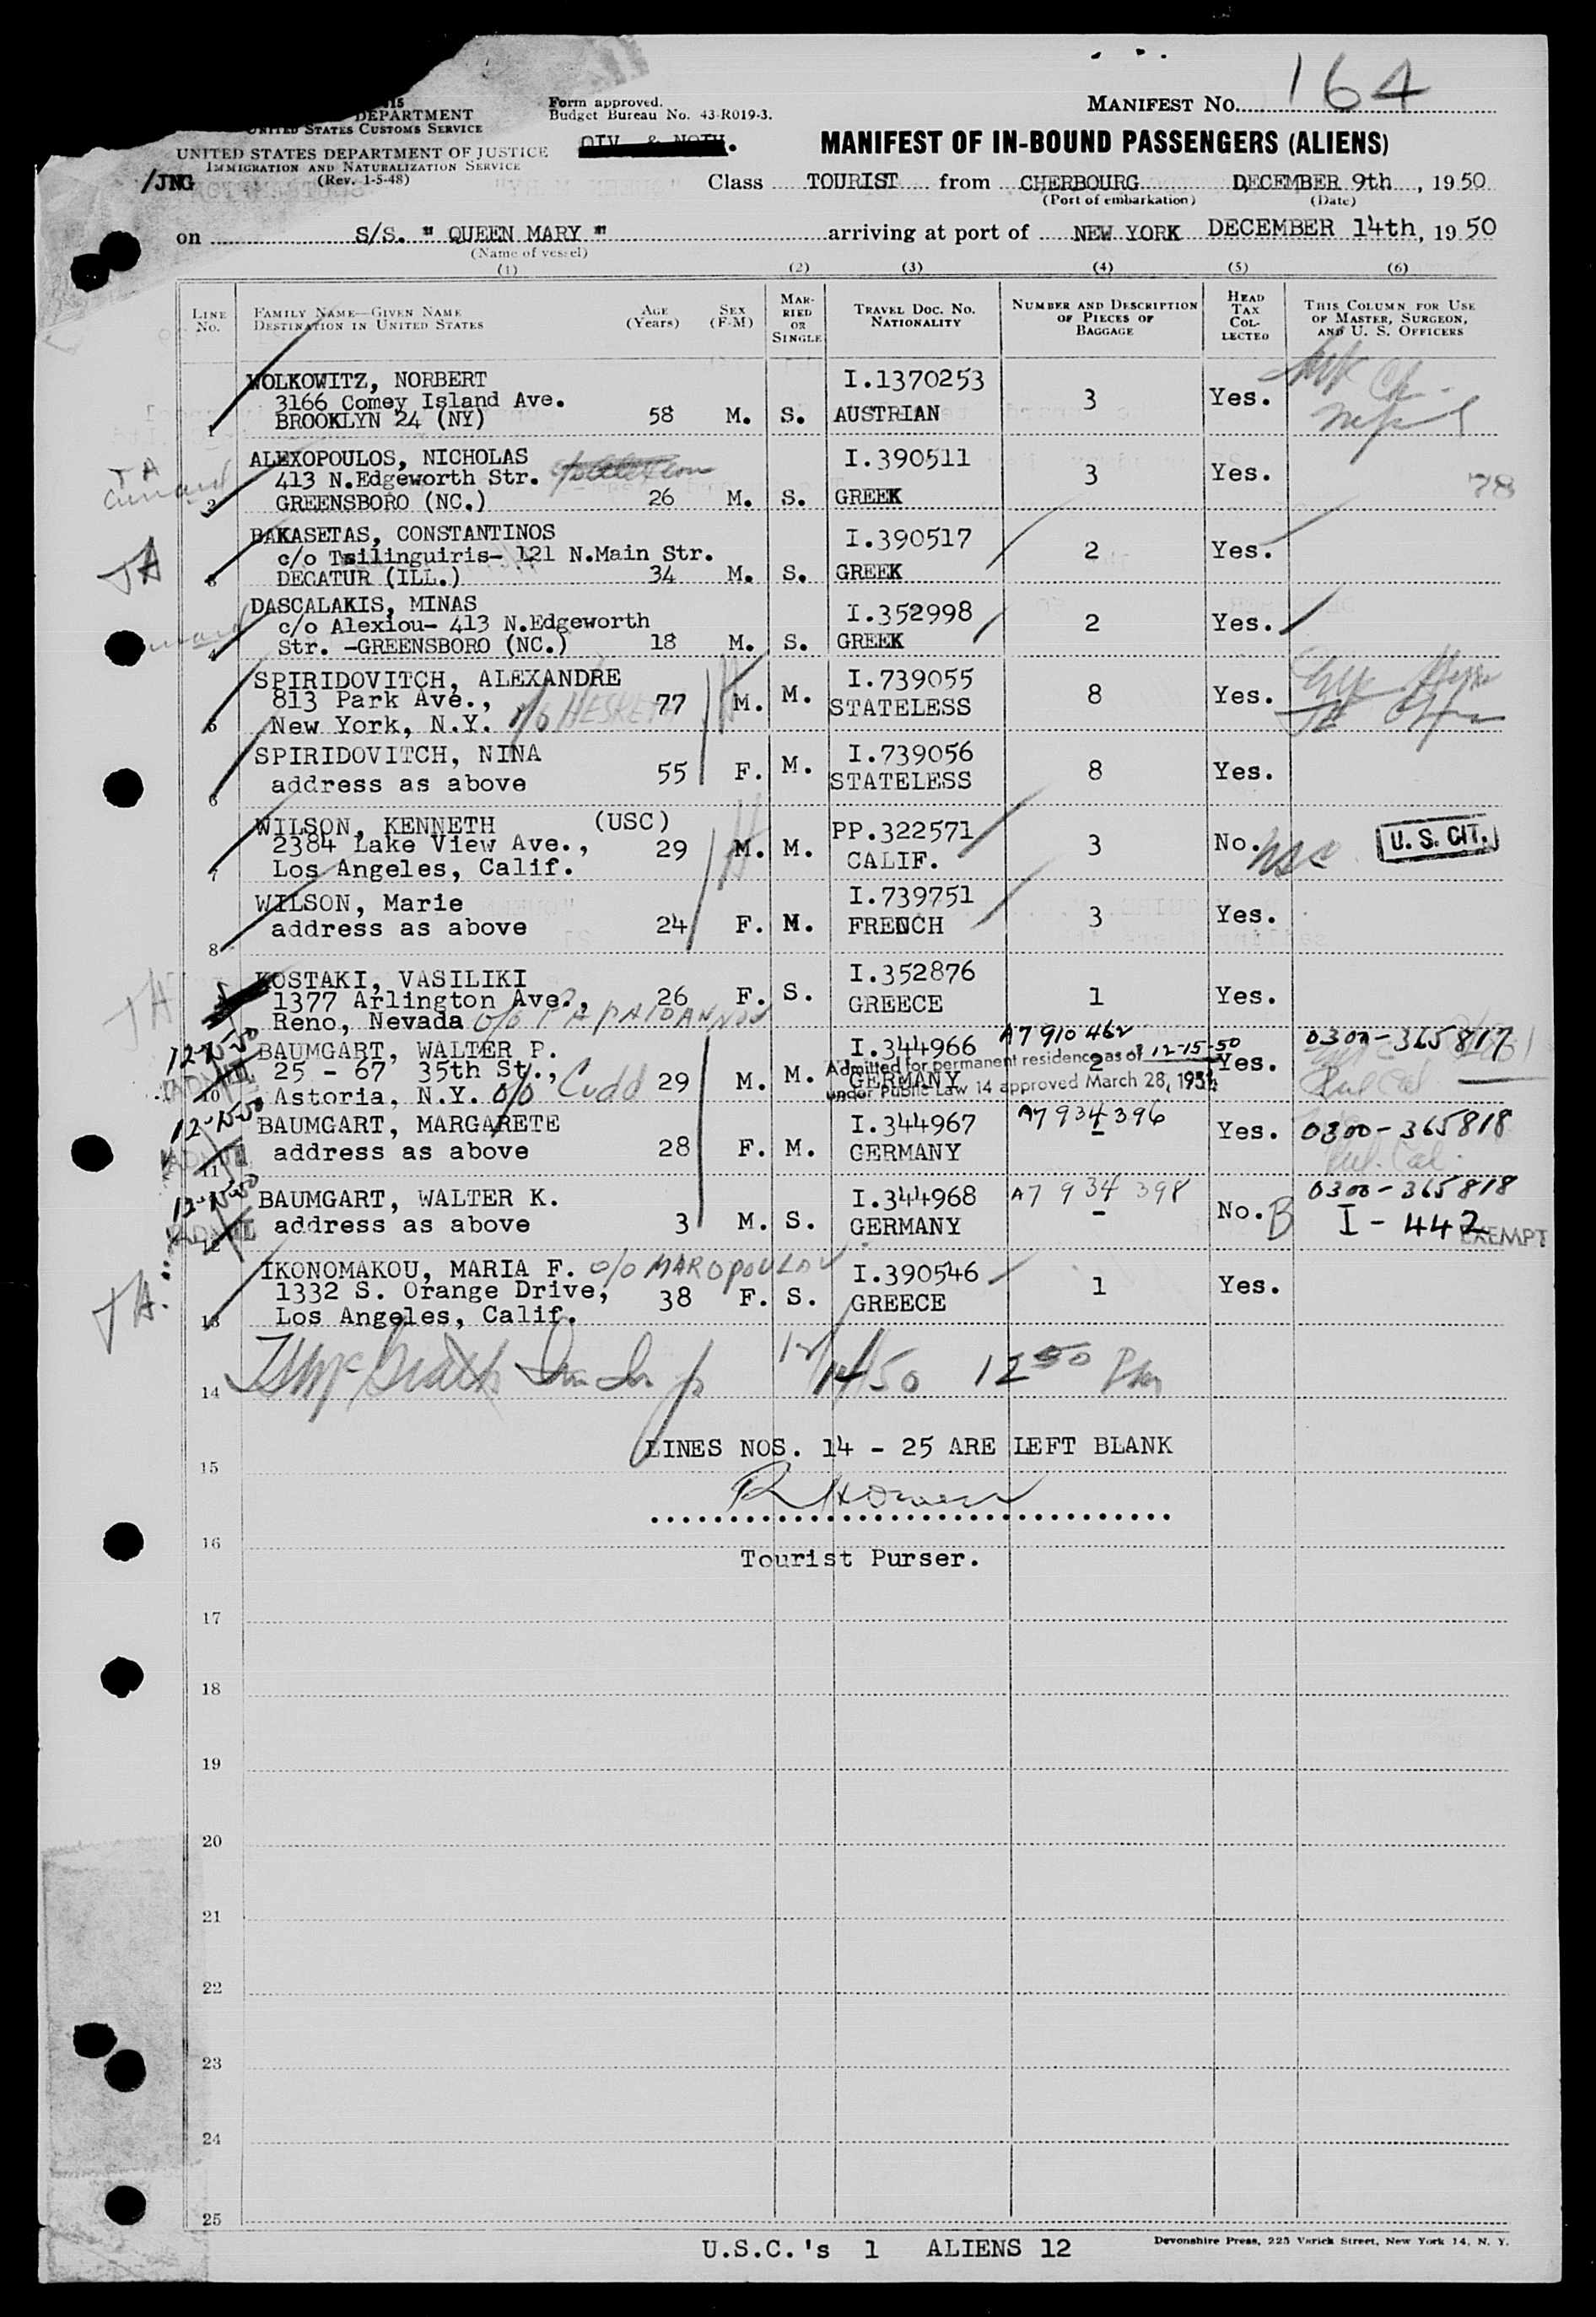 DEPARTMENT
UNITED STATES CUSTOMS SERVICE
UNITED STATES DEPARTMENT OF JUSTICE
IMMIGRATION AND NATURALIZATION SERVICE
(Rev. 1-5-48)
/JNG
Form approved.
Budget Bureau No. 43-R019-3.
MANIFEST NO. 164
MANIFEST OF IN-BOUND PASSENGERS (ALIENS)
Class TOURIST from CHERBOURG DECEMBER 9th, 1950
(Port of embarkation) (Date)
on S/S. " QUEEN MARY " arriving at port of NEW YORK DECEMBER 14th, 1950
(Name of vessel)
(1) (2) (3) (4) (5) (6)
LINE NO. FAMILY NAME—GIVEN NAME DESTINATION IN UNITED STATES AGE (Years) SEX (F-M) MARRIED OR SINGLE TRAVEL DOC. NO. NATIONALITY NUMBER AND DESCRIPTION OF PIECES OF BAGGAGE HEAD TAX COLLECTED THIS COLUMN FOR USE OF MASTER, SURGEON, AND U. S. OFFICERS
WOLKOWITZ, NORBERT I.1370253
3166 Comey Island Ave. 3 Yes.
1 BROOKLYN 24 (NY) 58 M. S. AUSTRIAN
ALEXOPOULOS, NICHOLAS I.390511
TA Cunard 413 N.Edgeworth Str. 3 Yes. 78
2 GREENSBORO (NC.) 26 M. S. GREEK
BAKASETAS, CONSTANTINOS I.390517
c/o Tsilinguiris- 121 N.Main Str. 2 Yes.
TA 3 DECATUR (ILL.) 34 M. S. GREEK
DASCALAKIS, MINAS I.352998
c/o Alexiou- 413 N.Edgeworth 2 Yes.
4 Str. -GREENSBORO (NC.) 18 M. S. GREEK
SPIRIDOVITCH, ALEXANDRE I.739055
813 Park Ave., 77 M. M. STATELESS 8 Yes.
5 New York, N.Y.
SPIRIDOVITCH, NINA I.739056
6 address as above 55 F. M. STATELESS 8 Yes.
WILSON, KENNETH (USC) PP.322571
2384 Lake View Ave., 29 M. M. CALIF. 3 No. usc U. S. CIT.
7 Los Angeles, Calif.
WILSON, Marie I.739751
8 address as above 24 F. M. FRENCH 3 Yes.
KOSTAKI, VASILIKI I.352876
1377 Arlington Ave., 26 F. S. GREECE 1 Yes.
TA Reno, Nevada c/o PAPAIOANNOU
12-15-50 BAUMGART, WALTER P. I.344966 A7 910 462 0300-365817
25 - 67 35th St., 29 M. M. GERMANY 2 Yes.
10 Astoria, N.Y. c/o Cudd
Admitted for permanent residence as of 12-15-50
under Public Law 14 approved March 28, 1951
12-15-50 BAUMGART, MARGARETE I.344967 A7 934 396
11 address as above 28 F. M. GERMANY - Yes. 0300-365818
12-15-50 BAUMGART, WALTER K. I.344968 A7 934 398 0300-365818
12 address as above 3 M. S. GERMANY - No. B I-442 EXEMPT
IKONOMAKOU, MARIA F. c/o MAROPOULOU I.390546
TA. 1332 S. Orange Drive, 38 F. S. GREECE 1 Yes.
13 Los Angeles, Calif.
14 12/14/50 12 50 Pm
LINES NOS. 14 - 25 ARE LEFT BLANK
15
16
Tourist Purser.
17
18
19
20
21
22
23
24
25
U.S.C.'s 1 ALIENS 12
Devonshire Press, 225 Varick Street, New York 14, N. Y.